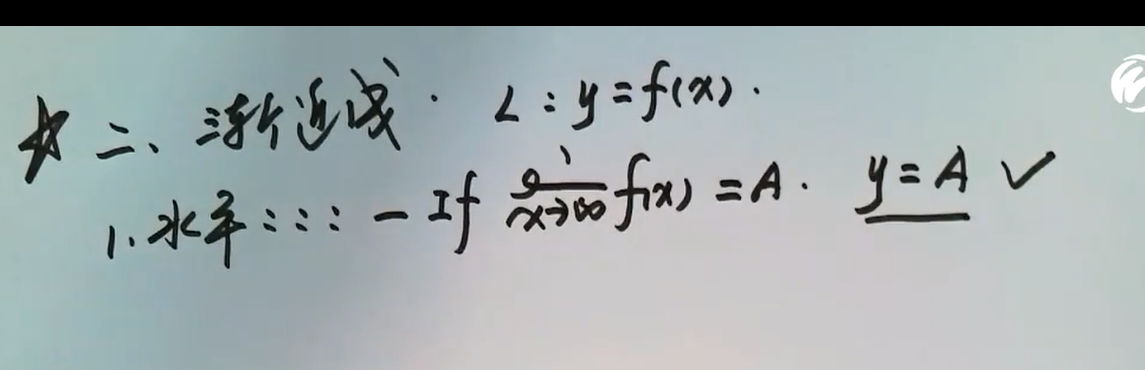 ☆ 二、渐近线. L: y=f(x).
1. 水平::: — If lim x→∞ f(x) = A. y=A ✓